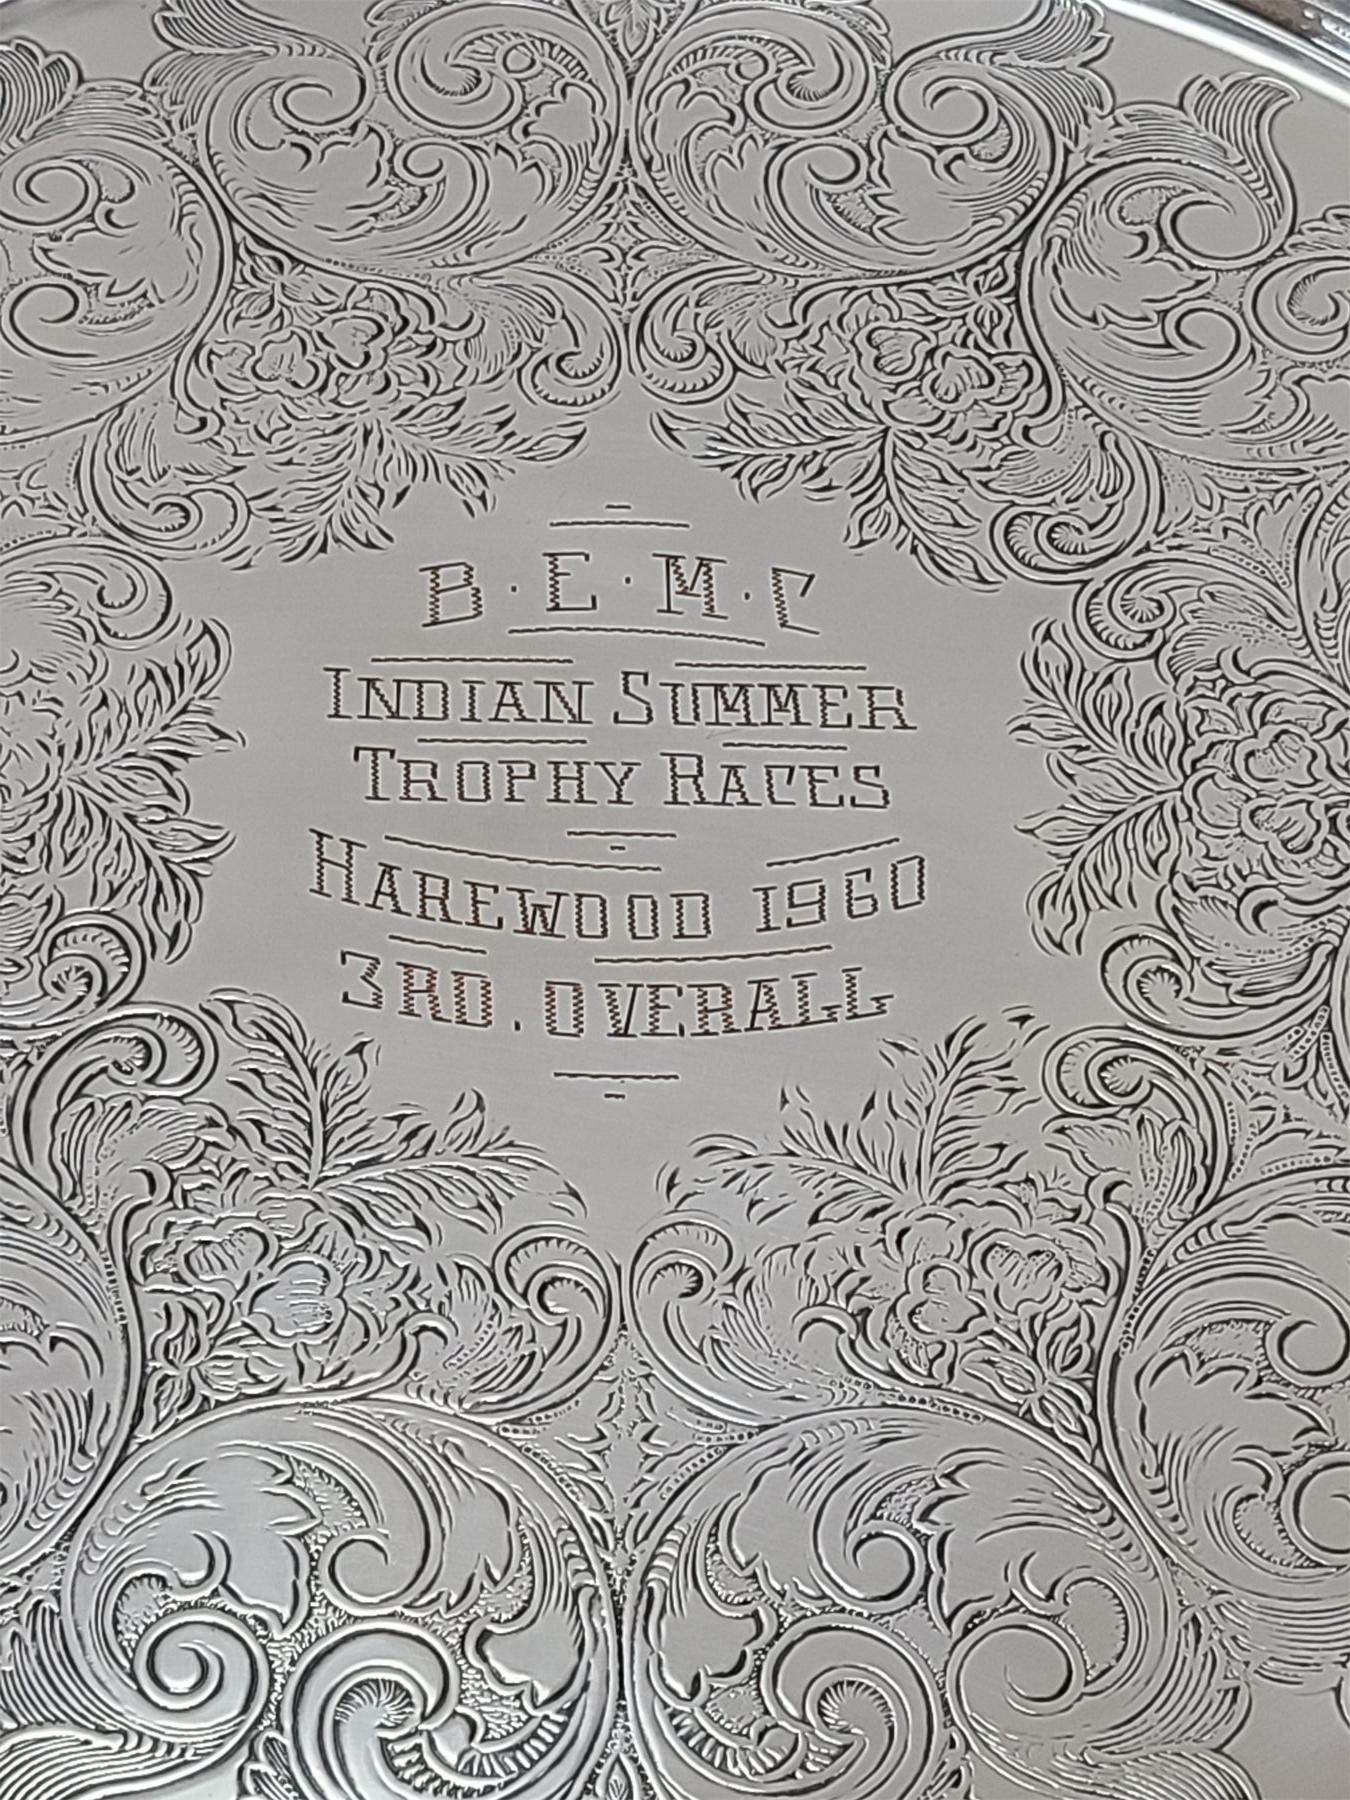 B·E·M·C
INDIAN SUMMER
TROPHY RACES
HAREWOOD 1960
3RD. OVERALL